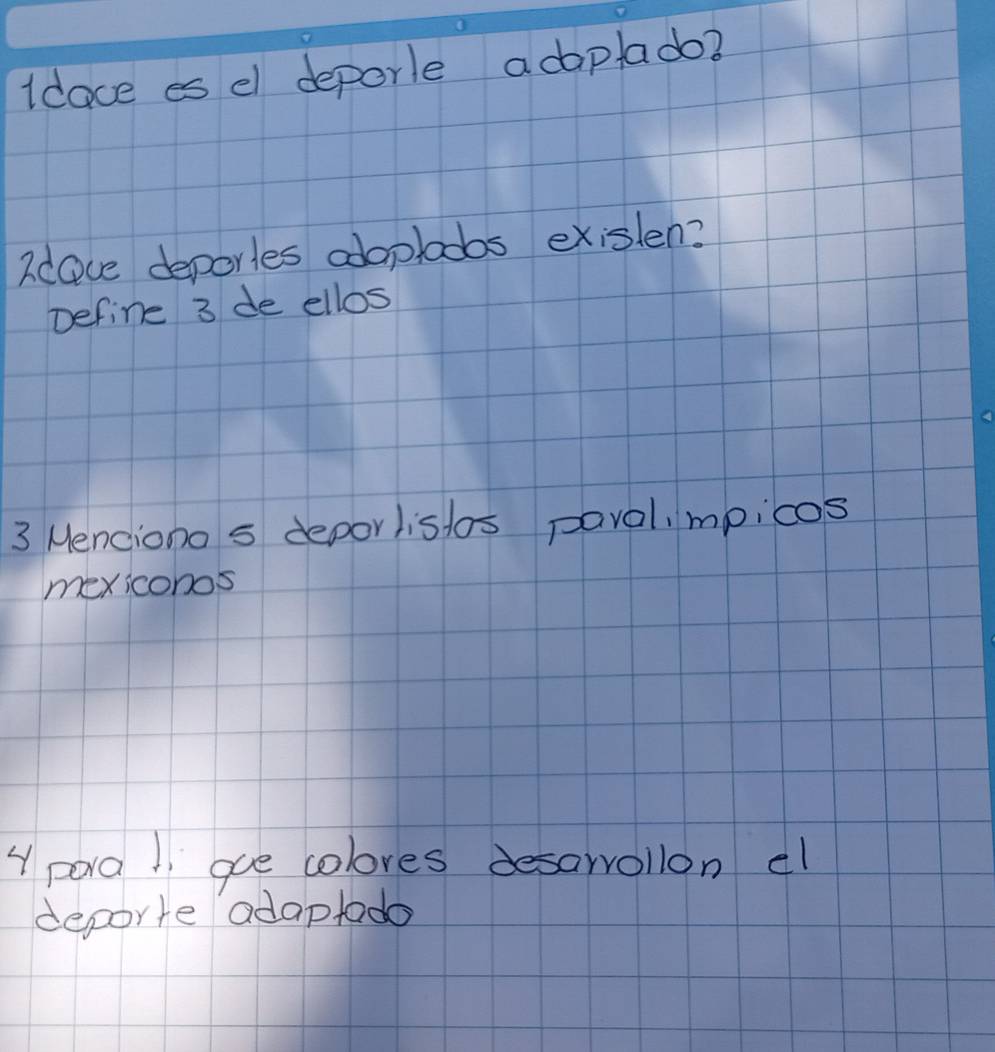 1¿Que es el deporte adaptado?
2¿Que deportes adaptados existen?
Define 3 de ellos
3 Menciona 5 deportistas paralimpicos
mexicanos
4 para ti que colores desarrollan el
deporte adaptado